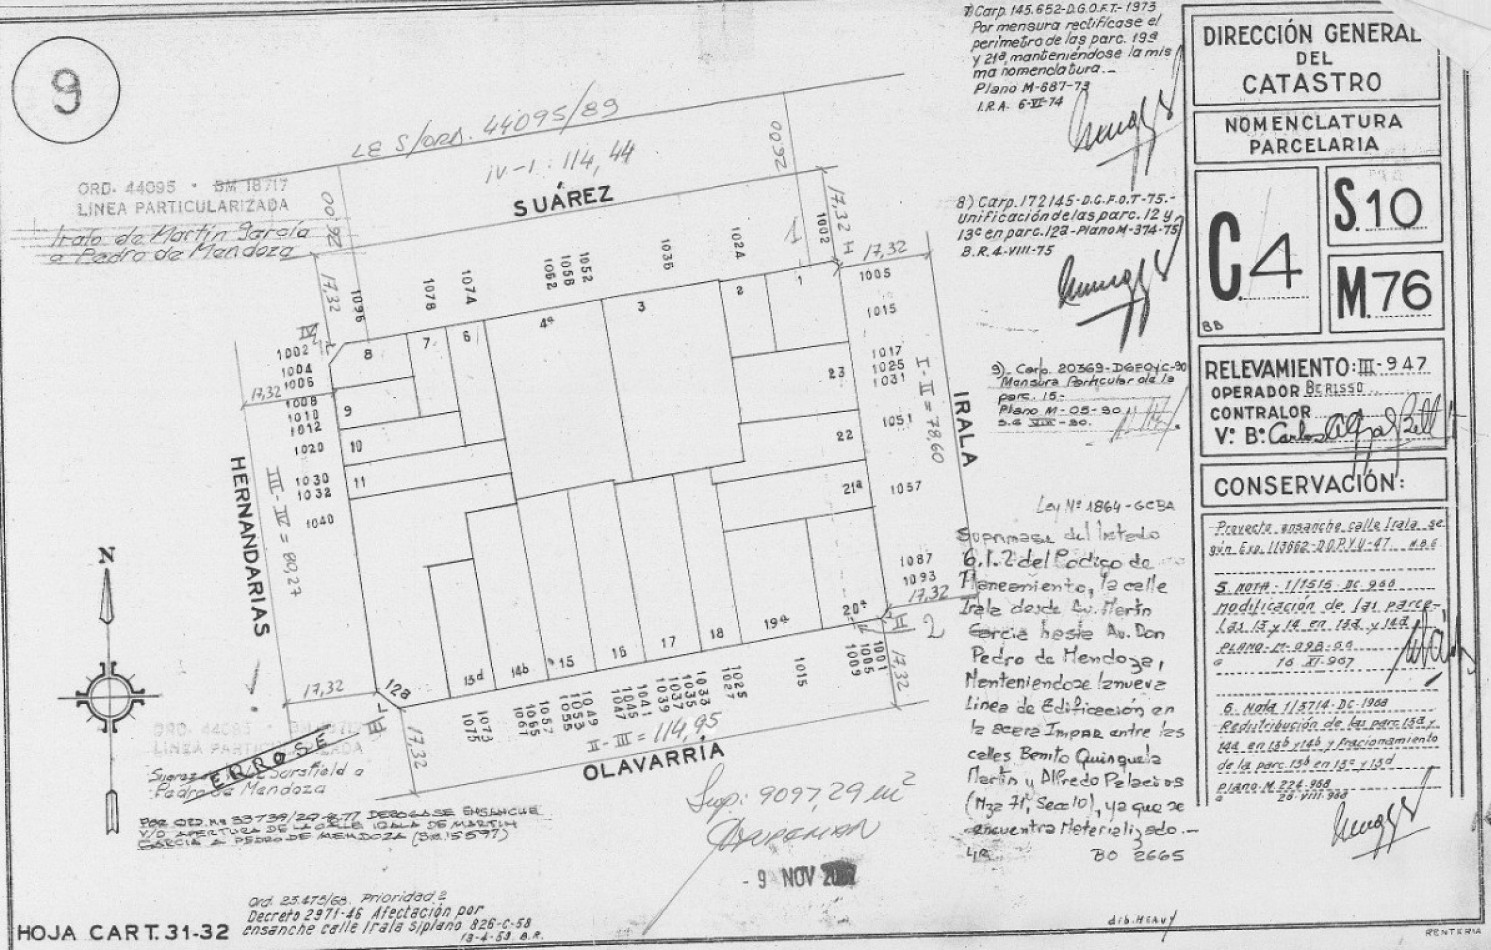 9
ORD. 44095 · BM 18717
LINEA PARTICULARIZADA
trato de Martín García
a Pedro de Mendoza
LE S/ORD. 44095/89
IV-I: 114,44
SUÁREZ
26,00
26,00
17,32
17,32
17,32
1096
1078
1074
1052
1056
1062
1036
1024
1002
IV
I
1002
1004
1006
17,32
1008
1010
1012
1020
1030
1032
1040
HERNANDARIAS
III-IV = 80,27
1005
1015
1017
1025
1031
1051
1057
1087
1093
17,32
I-II = 78,60
IRALA
8
7
6
4a
3
2
1
9
10
11
23
22
21a
20a
19a
18
17
16
15
14b
13d
12a
III
II
2
17,32
17,32
17,32
1075
1073
1067
1065
1057
1055
1053
1049
1047
1045
1041
1039
1037
1035
1033
1027
1025
1015
1009
1005
1001
II-III = 114,95
OLAVARRÍA
Sup: 9097,29 m²
- 9 NOV
N
ORD. 44095
LINEA PARTICULARIZADA
ERROSE
Pedro de Mendoza
POR ORD. Nº 33739/27-8-77 DEROGASE ENSANCHE
Y/O APERTURA DE LA CALLE IRALA DE MARTIN
GARCIA A PEDRO DE MENDOZA (B.M. 15597)
Ord. 23.475/68. Prioridad 2
Decreto 2971-46 Afectación por
ensanche calle Irala s/plano 826-C-58
13-4-59 B.R.
HOJA CART. 31-32
7) Carp. 145.652-D.G.O.F.T.-1973
Por mensura rectifícase el
perímetro de las parc. 19a
y 21a, manteniéndose la mis
ma nomenclatura.-
Plano M-687-73
I.R.A. 6-VI-74
8) Carp. 172145-D.G.F.O.T-75.-
Unificación de las parc. 12 y
13c en parc. 12a-Plano M-374-75
B.R. 4-VIII-75
9)- Carp. 20369-DGFOyC-90
Mensura Particular de la
parc. 15-
Plano M-05-90
Ley Nº 1864-GCBA
Suprimase del listado
6.1.2 del Código de
Planeamiento, la calle
Irala desde Av. Martín
García hasta Av. Don
Pedro de Mendoza,
Manteniendose la nueva
Línea de Edificación en
la acera Impar entre las
calles Benito Quinquela
Martín y Alfredo Palacios
(Mza 71, Secc 10), ya que se
encuentra Materializado.-
BO 2665
DIRECCIÓN GENERAL
DEL
CATASTRO
NOMENCLATURA
PARCELARIA
C.4
BB
S.10
M.76
RELEVAMIENTO: III-947
OPERADOR BERISSO
CONTRALOR
V° B° Carlos
CONSERVACIÓN:
Proyecto ensanche calle Irala se
gún Exp. 113662-D.O.P.Y.U-47
5. NOTA- 1/1515-DC 966
modificación de las parce-
las 13 y 14 en 13a y 14a
PLANO-M-098-
16 XI-967
6. Nota 1/3714-DC-1968
Redistribución de las parc. 13a y
14a en 13b y 14b y fraccionamiento
de la parc. 13b en 13c y 13d
Plano-M.224-968
20-VIII-968
dib. HEAVY
RENTERIA